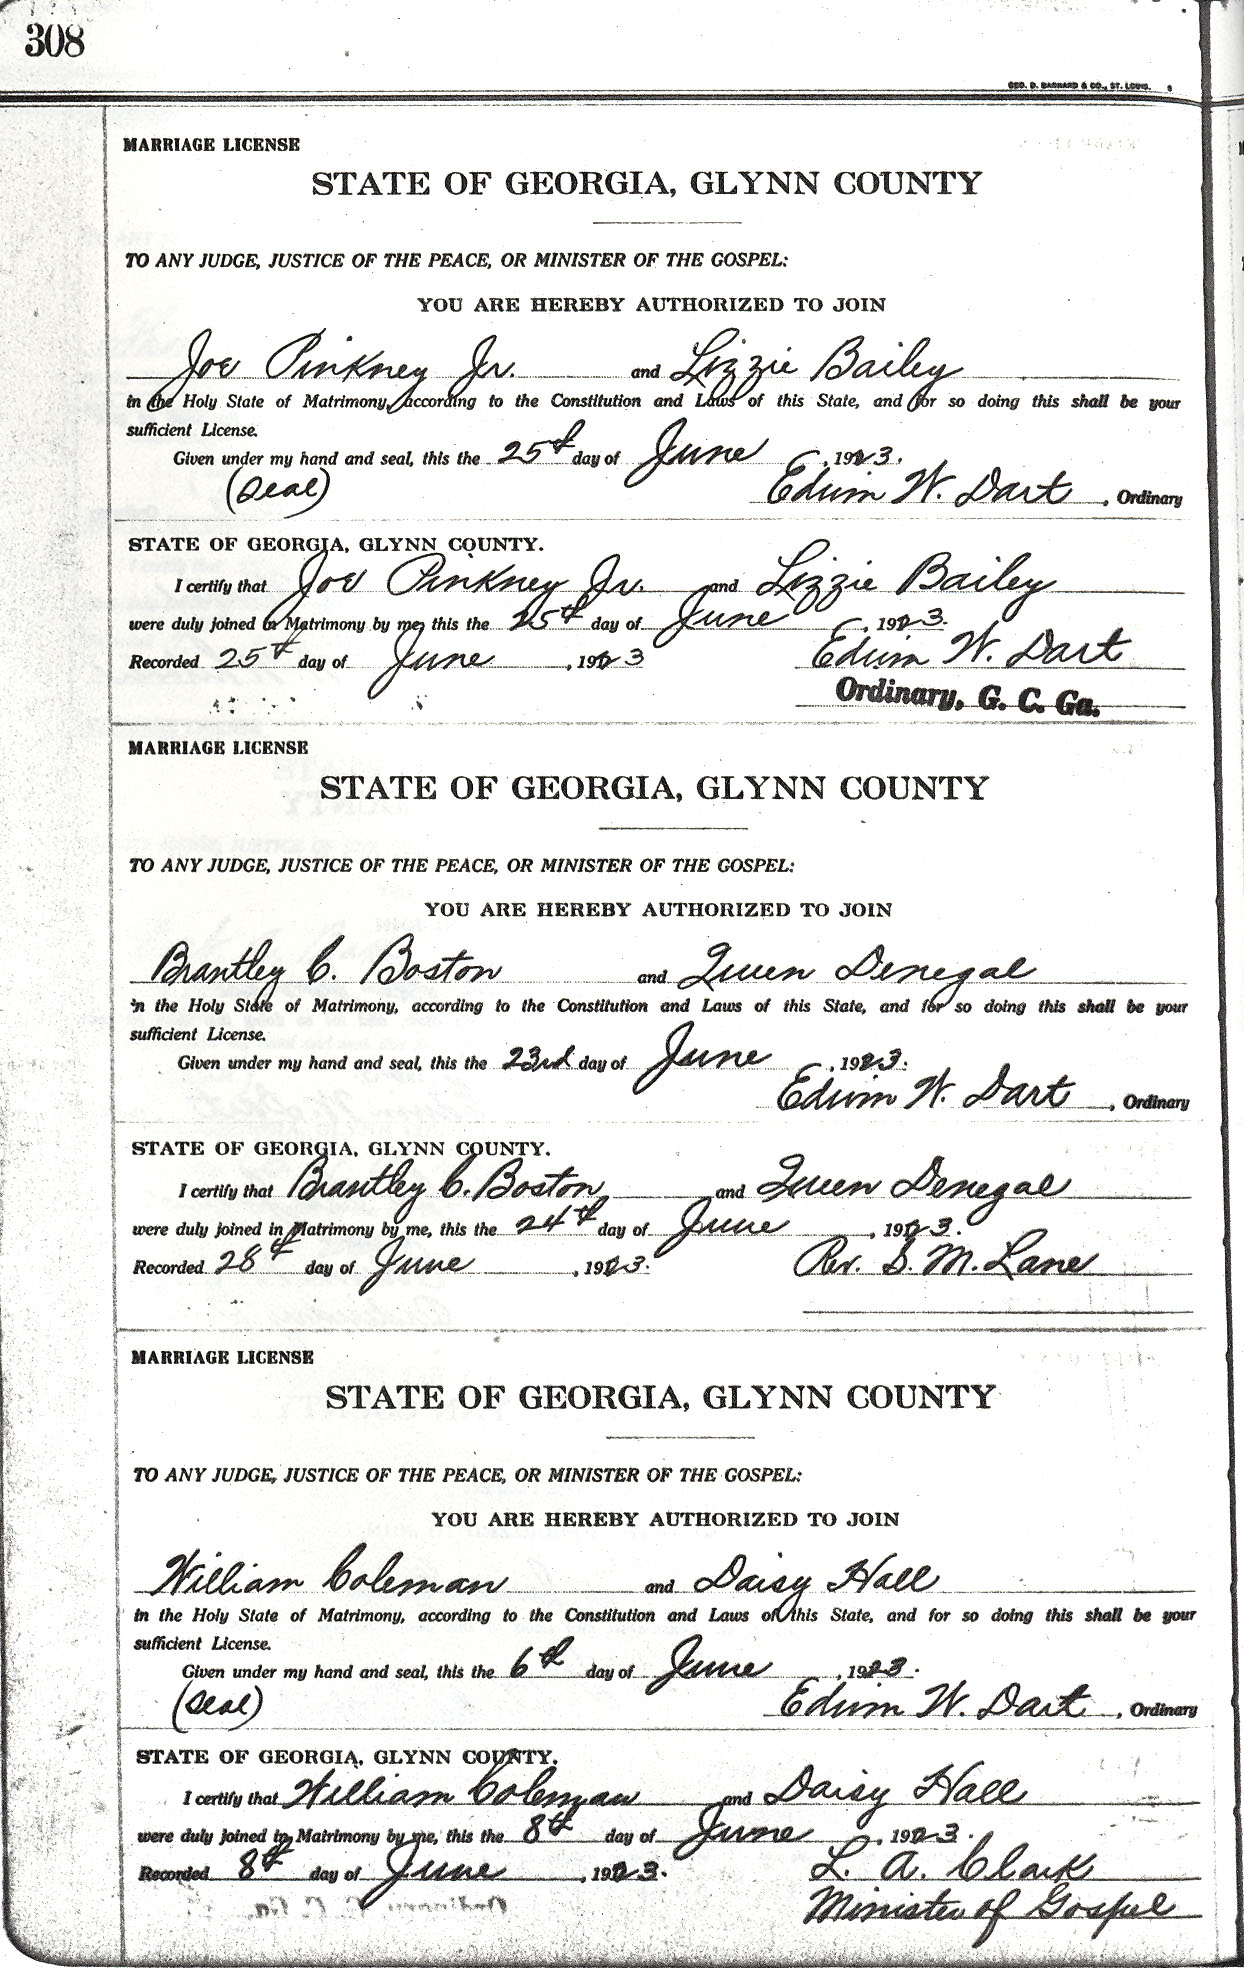 308
GEO. D. BARNARD & CO., ST. LOUIS.
MARRIAGE LICENSE
STATE OF GEORGIA, GLYNN COUNTY
TO ANY JUDGE, JUSTICE OF THE PEACE, OR MINISTER OF THE GOSPEL:
YOU ARE HEREBY AUTHORIZED TO JOIN
Joe Pinkney Jr. and Lizzie Bailey
in the Holy State of Matrimony, according to the Constitution and Laws of this State, and for so doing this shall be your
sufficient License.
Given under my hand and seal, this the 25th day of June, 1923.
(Seal) Edwin W. Dart, Ordinary
STATE OF GEORGIA, GLYNN COUNTY.
I certify that Joe Pinkney Jr. and Lizzie Bailey
were duly joined in Matrimony by me, this the 25th day of June, 1923.
Recorded 25th day of June, 1923 Edwin W. Dart
Ordinary, G. C. Ga.
MARRIAGE LICENSE
STATE OF GEORGIA, GLYNN COUNTY
TO ANY JUDGE, JUSTICE OF THE PEACE, OR MINISTER OF THE GOSPEL:
YOU ARE HEREBY AUTHORIZED TO JOIN
Brantley C. Boston and Queen Denegal
in the Holy State of Matrimony, according to the Constitution and Laws of this State, and for so doing this shall be your
sufficient License.
Given under my hand and seal, this the 23rd day of June, 1923.
Edwin W. Dart, Ordinary
STATE OF GEORGIA, GLYNN COUNTY.
I certify that Brantley C. Boston and Queen Denegal
were duly joined in Matrimony by me, this the 24th day of June, 1923.
Recorded 28th day of June, 1923. Rev. S. M. Lane
MARRIAGE LICENSE
STATE OF GEORGIA, GLYNN COUNTY
TO ANY JUDGE, JUSTICE OF THE PEACE, OR MINISTER OF THE GOSPEL:
YOU ARE HEREBY AUTHORIZED TO JOIN
William Coleman and Daisy Hall
in the Holy State of Matrimony, according to the Constitution and Laws of this State, and for so doing this shall be your
sufficient License.
Given under my hand and seal, this the 6th day of June, 1923.
(Seal) Edwin W. Dart, Ordinary
STATE OF GEORGIA, GLYNN COUNTY.
I certify that William Coleman and Daisy Hall
were duly joined in Matrimony by me, this the 8th day of June, 1923.
Recorded 8th day of June, 1923. L. A. Clark
Minister of Gospel